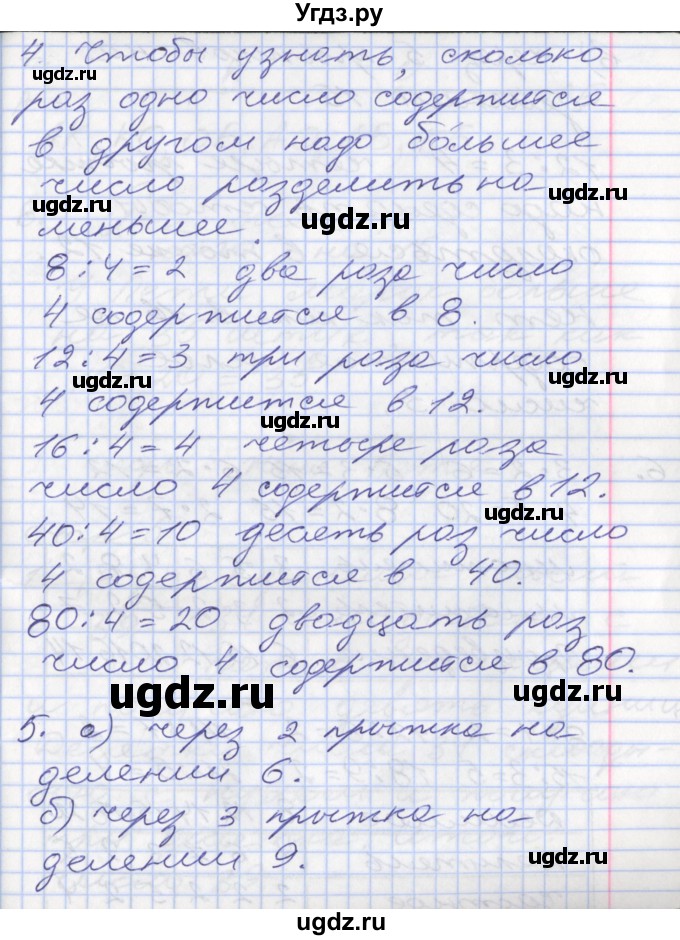 Угдз.ру
4. Чтобы узнать, сколько
раз одно число содержится
в другом надо бо́льшее
число разделить на
меньшее.
8:4=2 два раза число
4 содержится в 8.
12:4=3 три раза число
4 содержится в 12.
16:4=4 четыре раза
число 4 содержится в 12.
40:4=10 десять раз число
4 содержится в 40.
80:4=20 двадцать раз
число 4 содержится в 80.
5. а) через 2 прыжка на
делении 6.
б) через 3 прыжка на
делении 9.
ugdz.ru
ugdz.ru
ugdz.ru
ugdz.ru
ugdz.ru
ugdz.ru
ugdz.ru
ugdz.ru
ugdz.ru
ugdz.ru
ugdz.ru